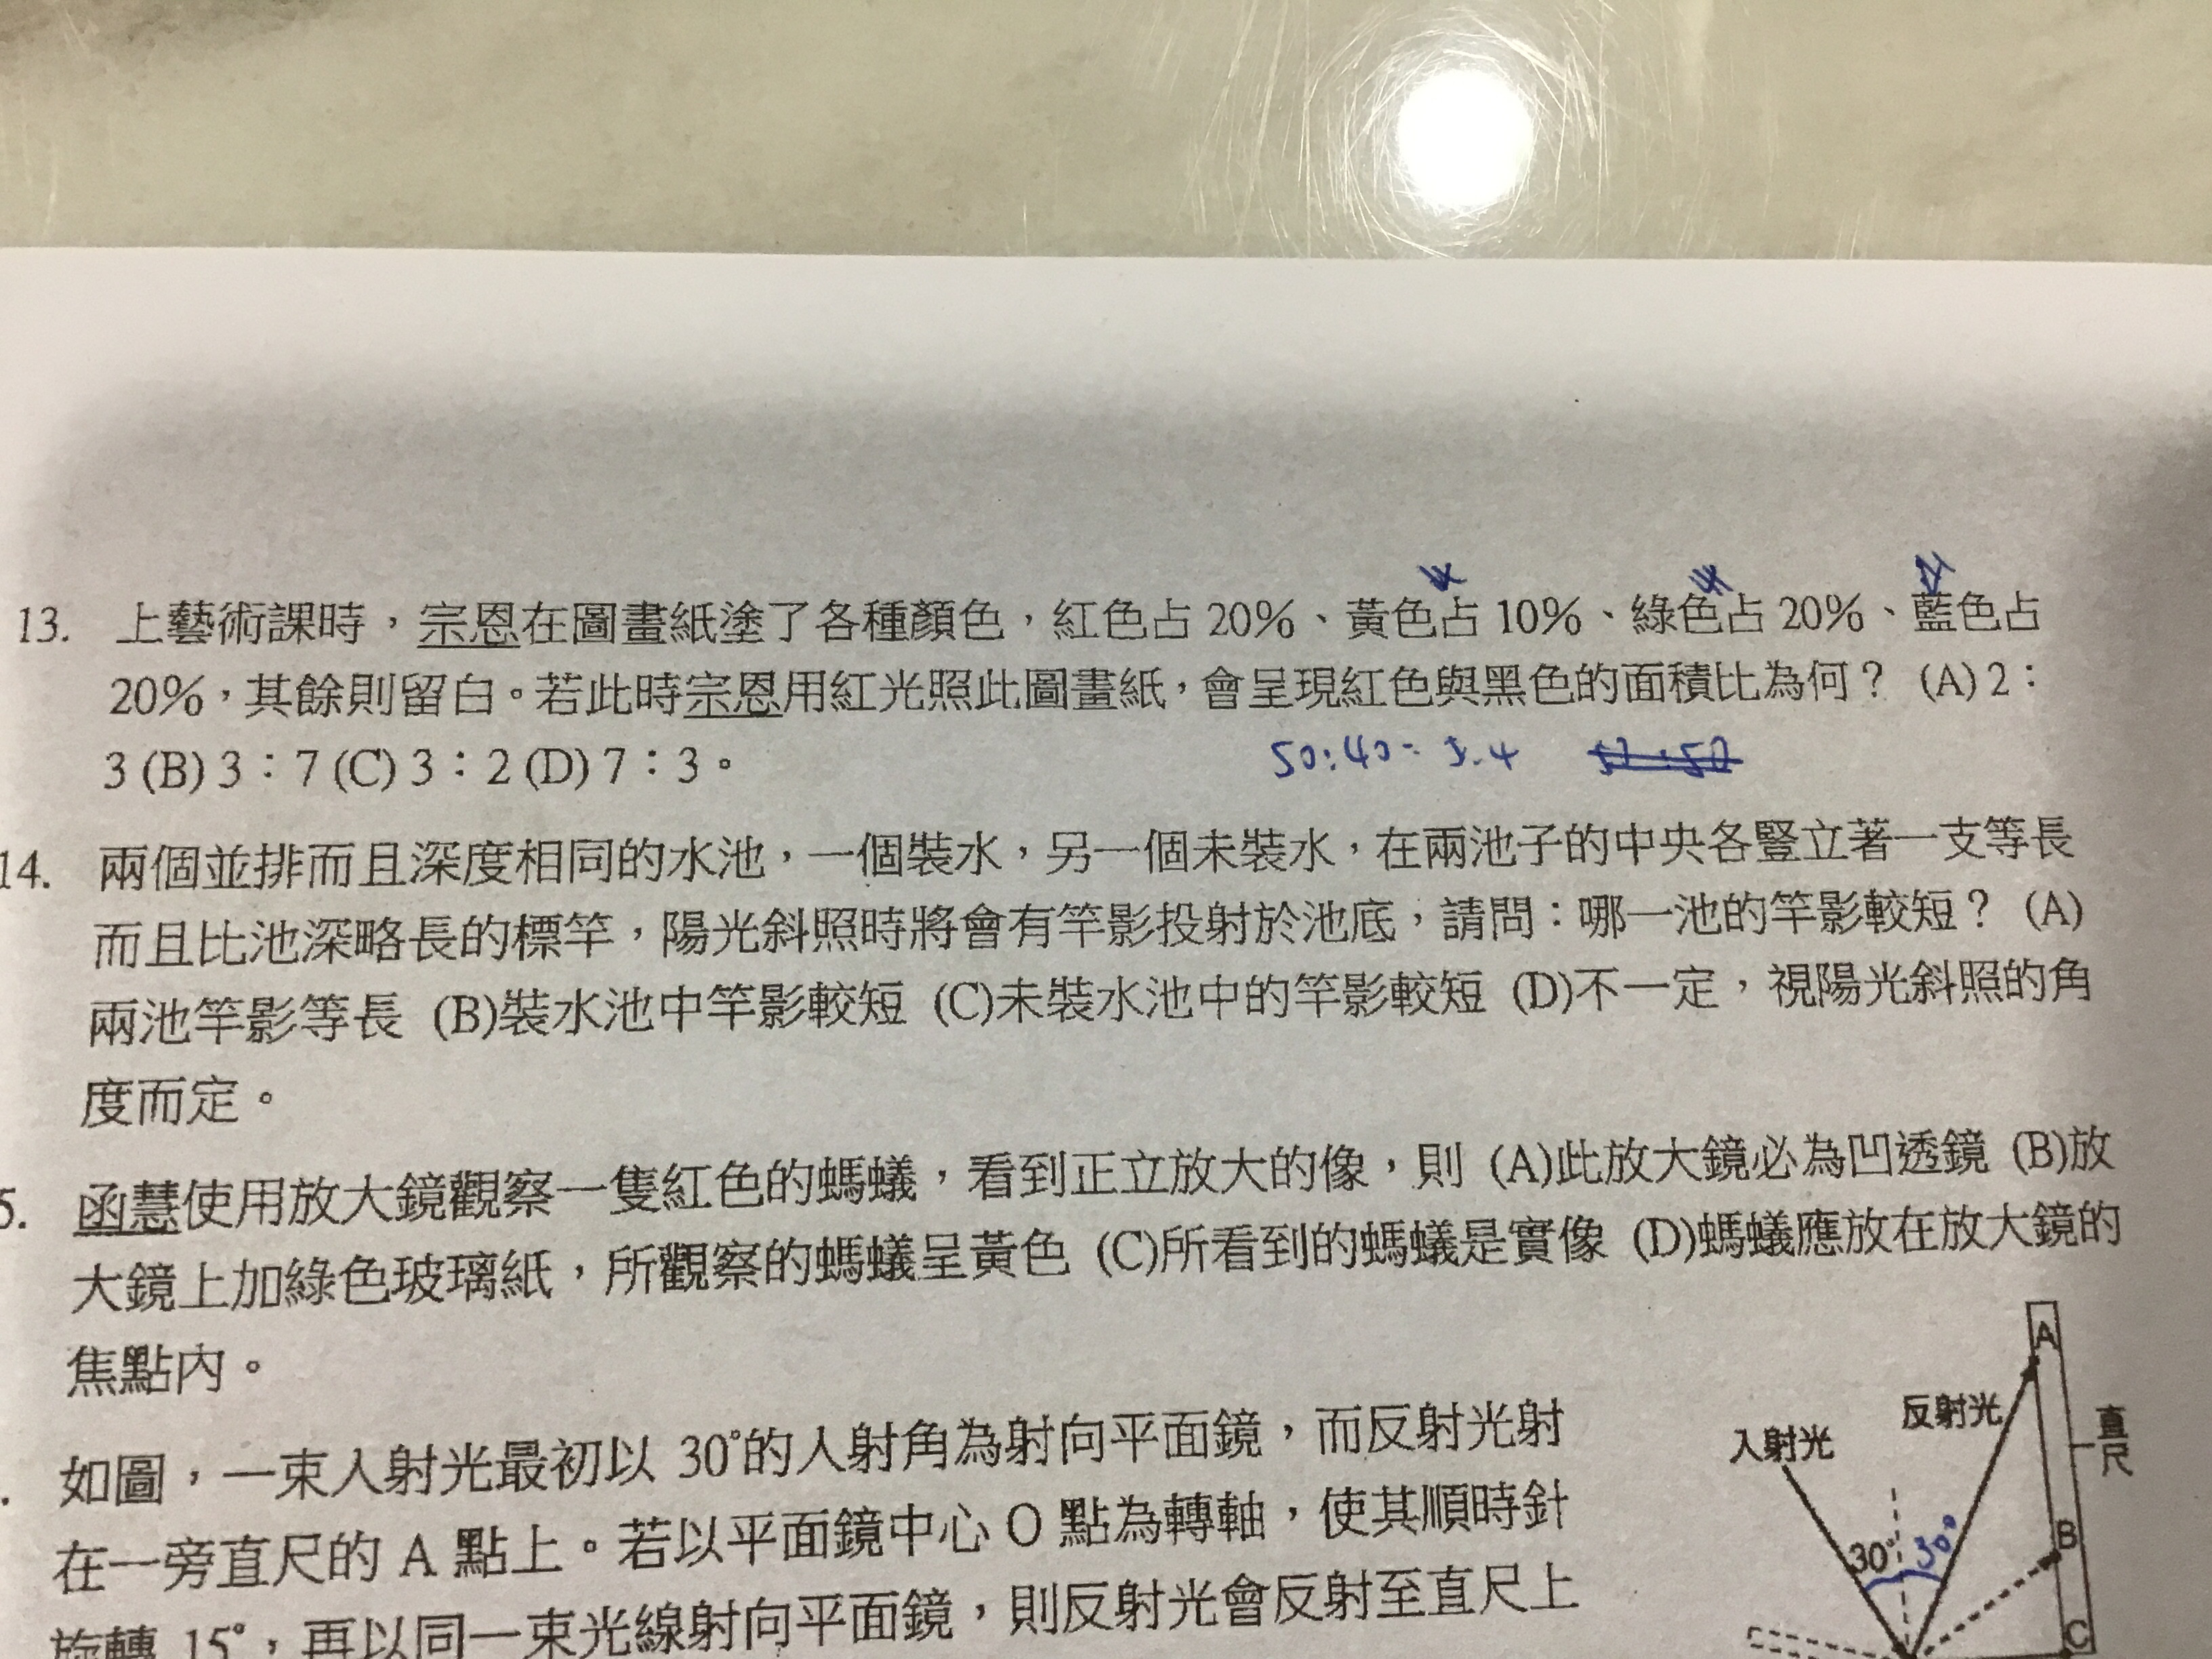 13. 上藝術課時，宗恩在圖畫紙塗了各種顏色，紅色占 20%、黃色占 10%、綠色占 20%、藍色占
20%，其餘則留白。若此時宗恩用紅光照此圖畫紙，會呈現紅色與黑色的面積比為何？ (A) 2：
3 (B) 3：7 (C) 3：2 (D) 7：3。
50:40=5:4
14. 兩個並排而且深度相同的水池，一個裝水，另一個未裝水，在兩池子的中央各豎立著一支等長
而且比池深略長的標竿，陽光斜照時將會有竿影投射於池底，請問：哪一池的竿影較短？ (A)
兩池竿影等長 (B)裝水池中竿影較短 (C)未裝水池中的竿影較短 (D)不一定，視陽光斜照的角
度而定。
5. 函慧使用放大鏡觀察一隻紅色的螞蟻，看到正立放大的像，則 (A)此放大鏡必為凹透鏡 (B)放
大鏡上加綠色玻璃紙，所觀察的螞蟻呈黃色 (C)所看到的螞蟻是實像 (D)螞蟻應放在放大鏡的
焦點內。
. 如圖，一束入射光最初以 30°的入射角為射向平面鏡，而反射光射
在一旁直尺的 A 點上。若以平面鏡中心 O 點為轉軸，使其順時針
旋轉 15°，再以同一束光線射向平面鏡，則反射光會反射至直尺上
A
反射光
直尺
入射光
30° 30°
B
C